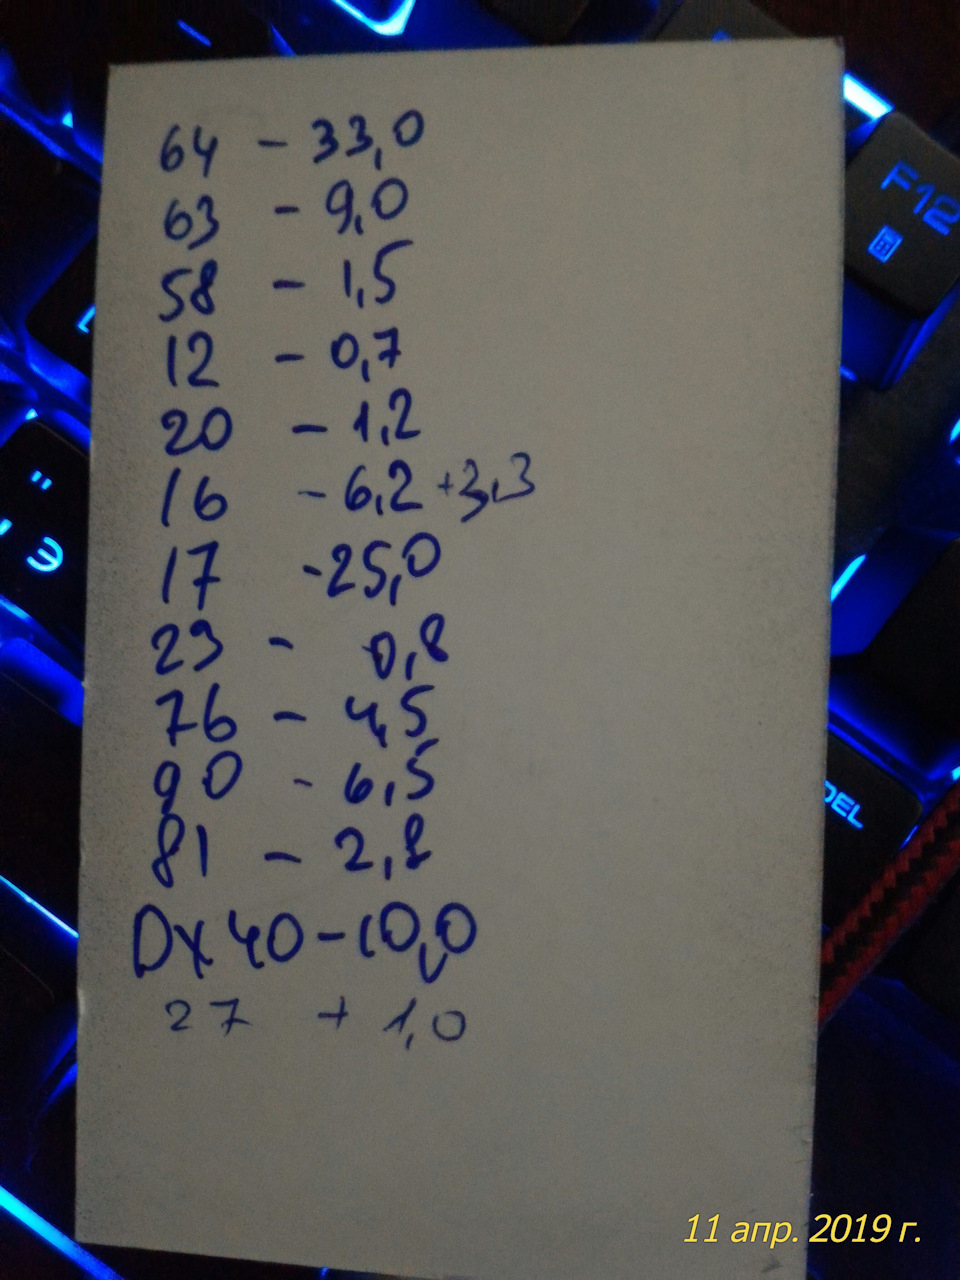 64 - 33,0
63 - 9,0
58 - 1,5
12 - 0,7
20 - 1,2
16 - 6,2 +3,3
17 - 25,0
23 - 0,8
76 - 4,5
90 - 6,5
81 - 2,8
Dx 40 - 10,0
27 + 1,0
F12
"
Э
DEL
11 апр. 2019 г.